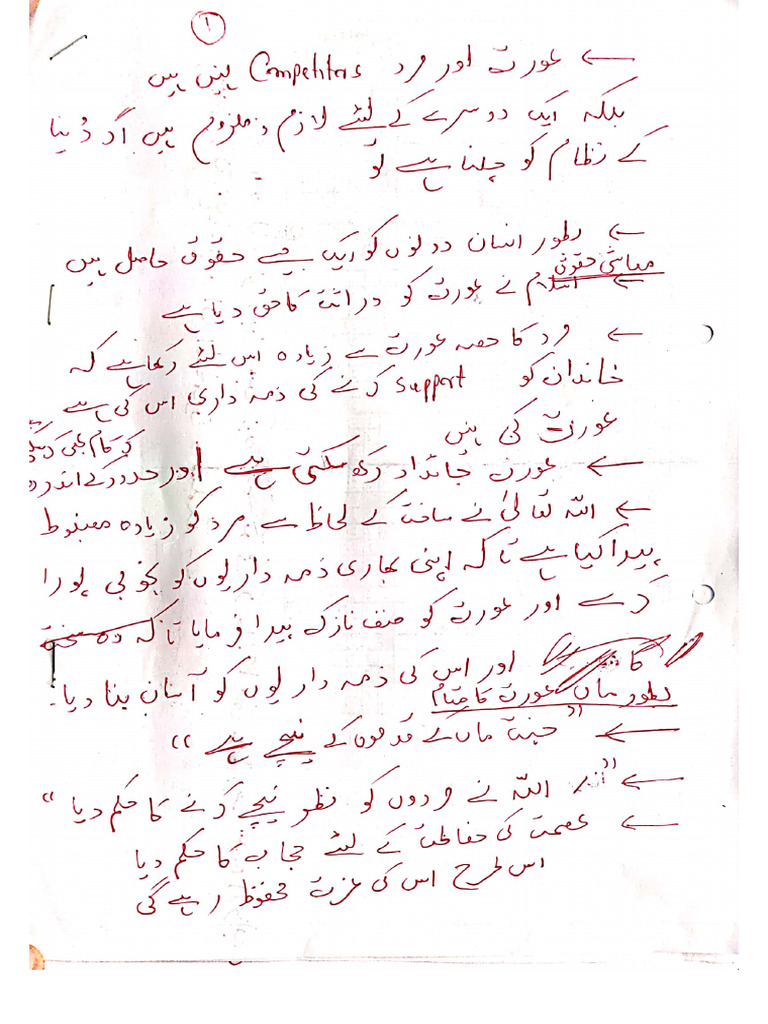 ۱
← عورت اور مرد Competitors نہیں ہیں
بلکہ ایک دوسرے کے لئے لازم و ملزوم ہیں اگر دُنیا
کے نظام کو چلنا ہے تو
← بطور انسان دونوں کو ایک جیسے حقوق حاصل ہیں
معاشی حقوق
← اسلام نے عورت کو وراثت کا حق دیا ہے
← مرد کا حصہ عورت سے زیادہ اس لئے رکھا ہے کہ
خاندان کو Support کرنے کی ذمہ داری اس کی ہے
عورت کی نہیں
← عورت جائداد رکھ سکتی ہے اور حدود کے اندر رہ
کر کام بھی کر سکتی ہے
← اللہ تعالیٰ نے ساخت کے لحاظ سے مرد کو زیادہ مضبوط
پیدا کیا ہے تاکہ اپنی بھاری ذمہ داریوں کو بخوبی پورا
کرے اور عورت کو صنف نازک پیدا فرمایا تاکہ وہ سخت
اور اس کی ذمہ داریوں کو آسان بنا دیا۔
بطور ماں عورت کا مقام
← "جنت ماں کے قدموں کے نیچے ہے"
← "اللہ نے مردوں کو نظر نیچے کرنے کا حکم دیا"
← عصمت کی حفاظت کے لئے حجاب کا حکم دیا
اس طرح اس کی عزت محفوظ رہے گی